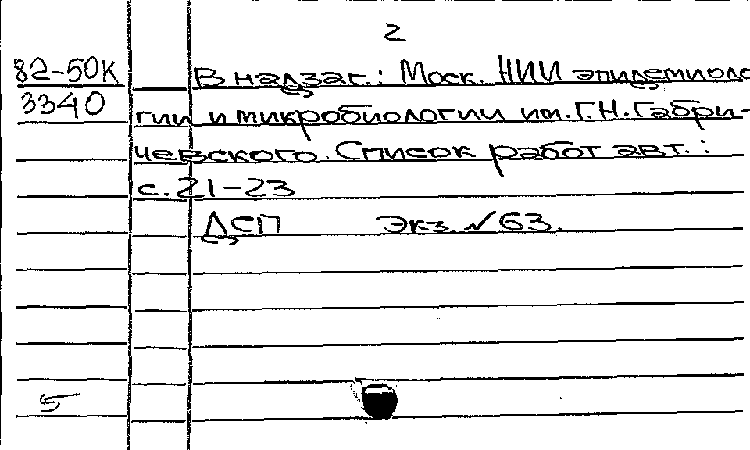 2
82-50К В надзаг.: Моск. НИИ эпидемиоло
3340 гии и микробиологии им. Г.Н. Габри-
чевского. Список работ авт.:
с. 21-23
ДСП Экз. №63.
5